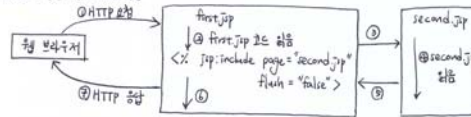 ① HTTP 요청
웹 브라우저
⑦ HTTP 응답
first.jsp
② first.jsp 코드 읽음
<% jsp:include page="second.jsp"
flush = "false">
⑥
③
⑤
second.jsp
④ second.j
읽음